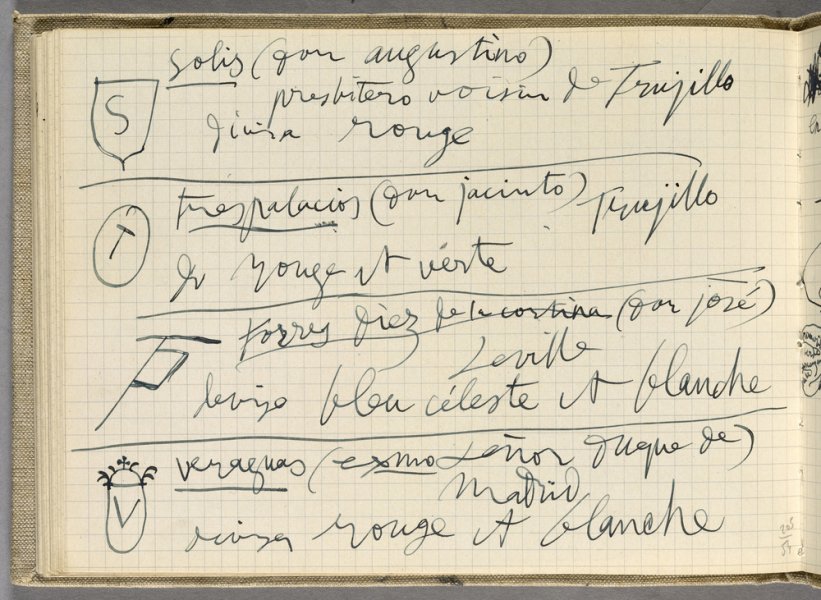 S
solis (don augustino)
presbitero voisin de Trujillo
divisa rouge
T
trespalacios (don jacinto) Trujillo
dv rouge et vérte
torres diez de la cortina (don josé)
Seville
devisa bleu céleste et blanche
V
veraguas (exmo señor duque de)
Madrid
divisa rouge et blanche